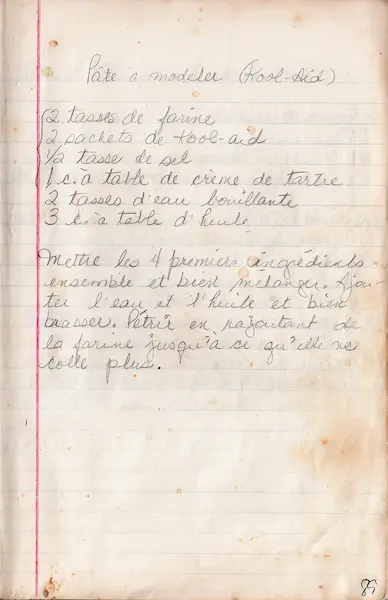 Pâte a modeler (Kool-Aid)
2 tasses de farine
2 sachets de kool-aid
1/2 tasse de sel
1 c. à table de crème de tartre
2 tasses d'eau bouillante
3 c. à table d'huile
Mettre les 4 premiers ingrédients
ensemble et bien mélanger. Ajou-
ter l'eau et l'huile et bien
brasser. Pétrir en rajoutant de
la farine jusqu'à ce qu'elle ne
colle plus.